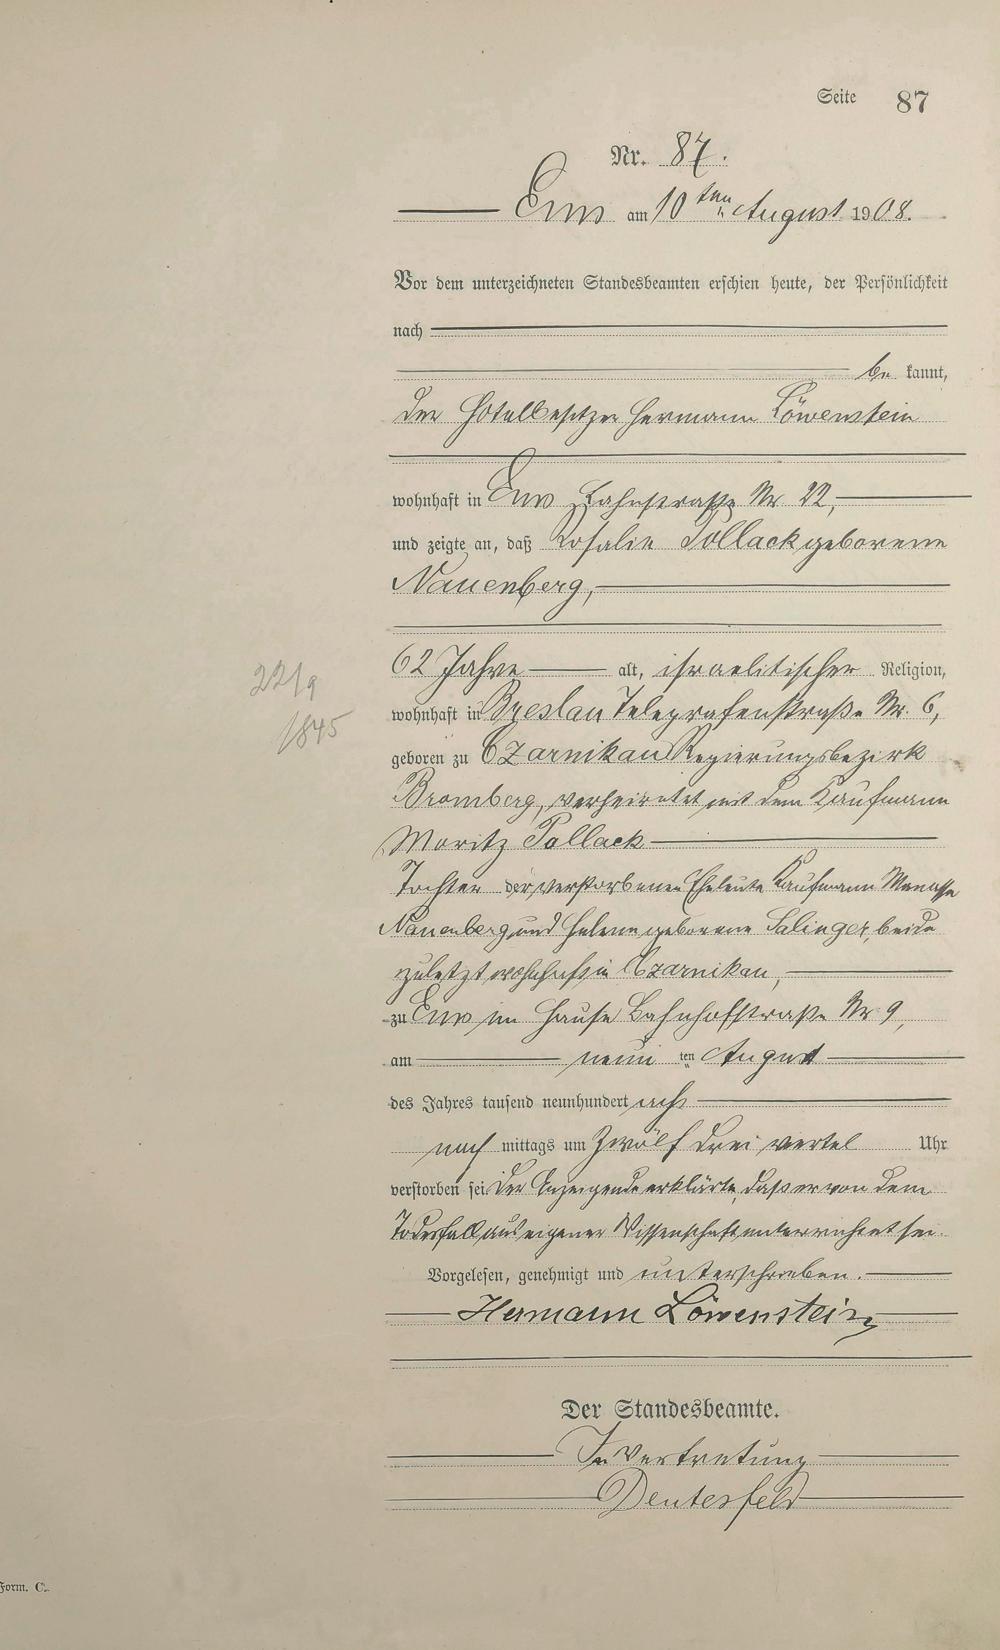 Seite 87
Nr. 87.
Ems am 10ten August 1908.
Vor dem unterzeichneten Standesbeamten erschien heute, der Persönlichkeit
nach
be kannt,
der Hotelbesitzer Hermann Löwenstein
wohnhaft in Ems Lahnstraße Nr 22,
und zeigte an, daß Rosalie Pollack geborene
Nauenberg,
62 Jahre alt, israelitischer Religion,
22/9
wohnhaft in Breslau Telegrafenstraße Nr. 6,
1845
geboren zu Czarnikau Regierungsbezirk
Bromberg, verheiratet mit dem Kaufmann
Moritz Pollack
Tochter der verstorbenen Eheleute Kaufmann Manasse
Nauenberg und Helene geborene Salinger, beide
zuletzt wohnhaft in Czarnikau,
zu Ems im Hause Bahnhofstraße Nr 9,
am neun ten August
des Jahres tausend neunhundert acht
nach mittags um Zwölf drei viertel Uhr
verstorben sei. Der Anzeigende erklärte, daß er von dem
Todesfall aus eigener Wissenschaft unterrichtet sei.
Vorgelesen, genehmigt und unterschrieben.
Hermann Löwenstein
Der Standesbeamte.
In Vertretung
Deutesfeld
Form. C.